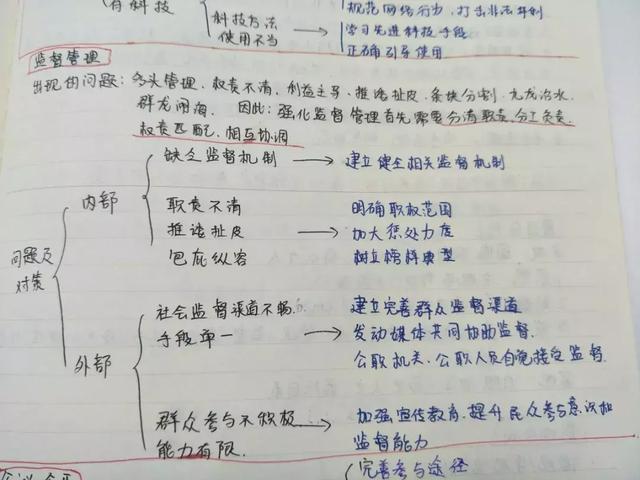 有科技
科技方法
使用不当
规范网络行为，打击非法牟利
学习先进科技手段
正确引导使用
监督管理
出现的问题：多头管理、权责不清、利益主导、推诿扯皮、条块分割、九龙治水、
群龙闹海。因此：强化监督管理首先需要分清职责、分工负责、
权责匹配、相互协调
问题及
对策
内部
缺乏监督机制 → 建立健全相关监督机制
职责不清 明确职权范围
推诿扯皮 → 加大惩处力度
包庇纵容 树立榜样典型
外部
社会监督渠道不畅 建立完善群众监督渠道
手段单一 → 发动媒体共同协助监督.
公职机关、公职人员自觉接受监督
群众参与不积极 → 加强宣传教育、提升民众参与意识和
能力有限. 监督能力
完善参与途径